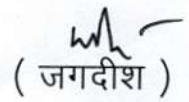 ( जगदीश )